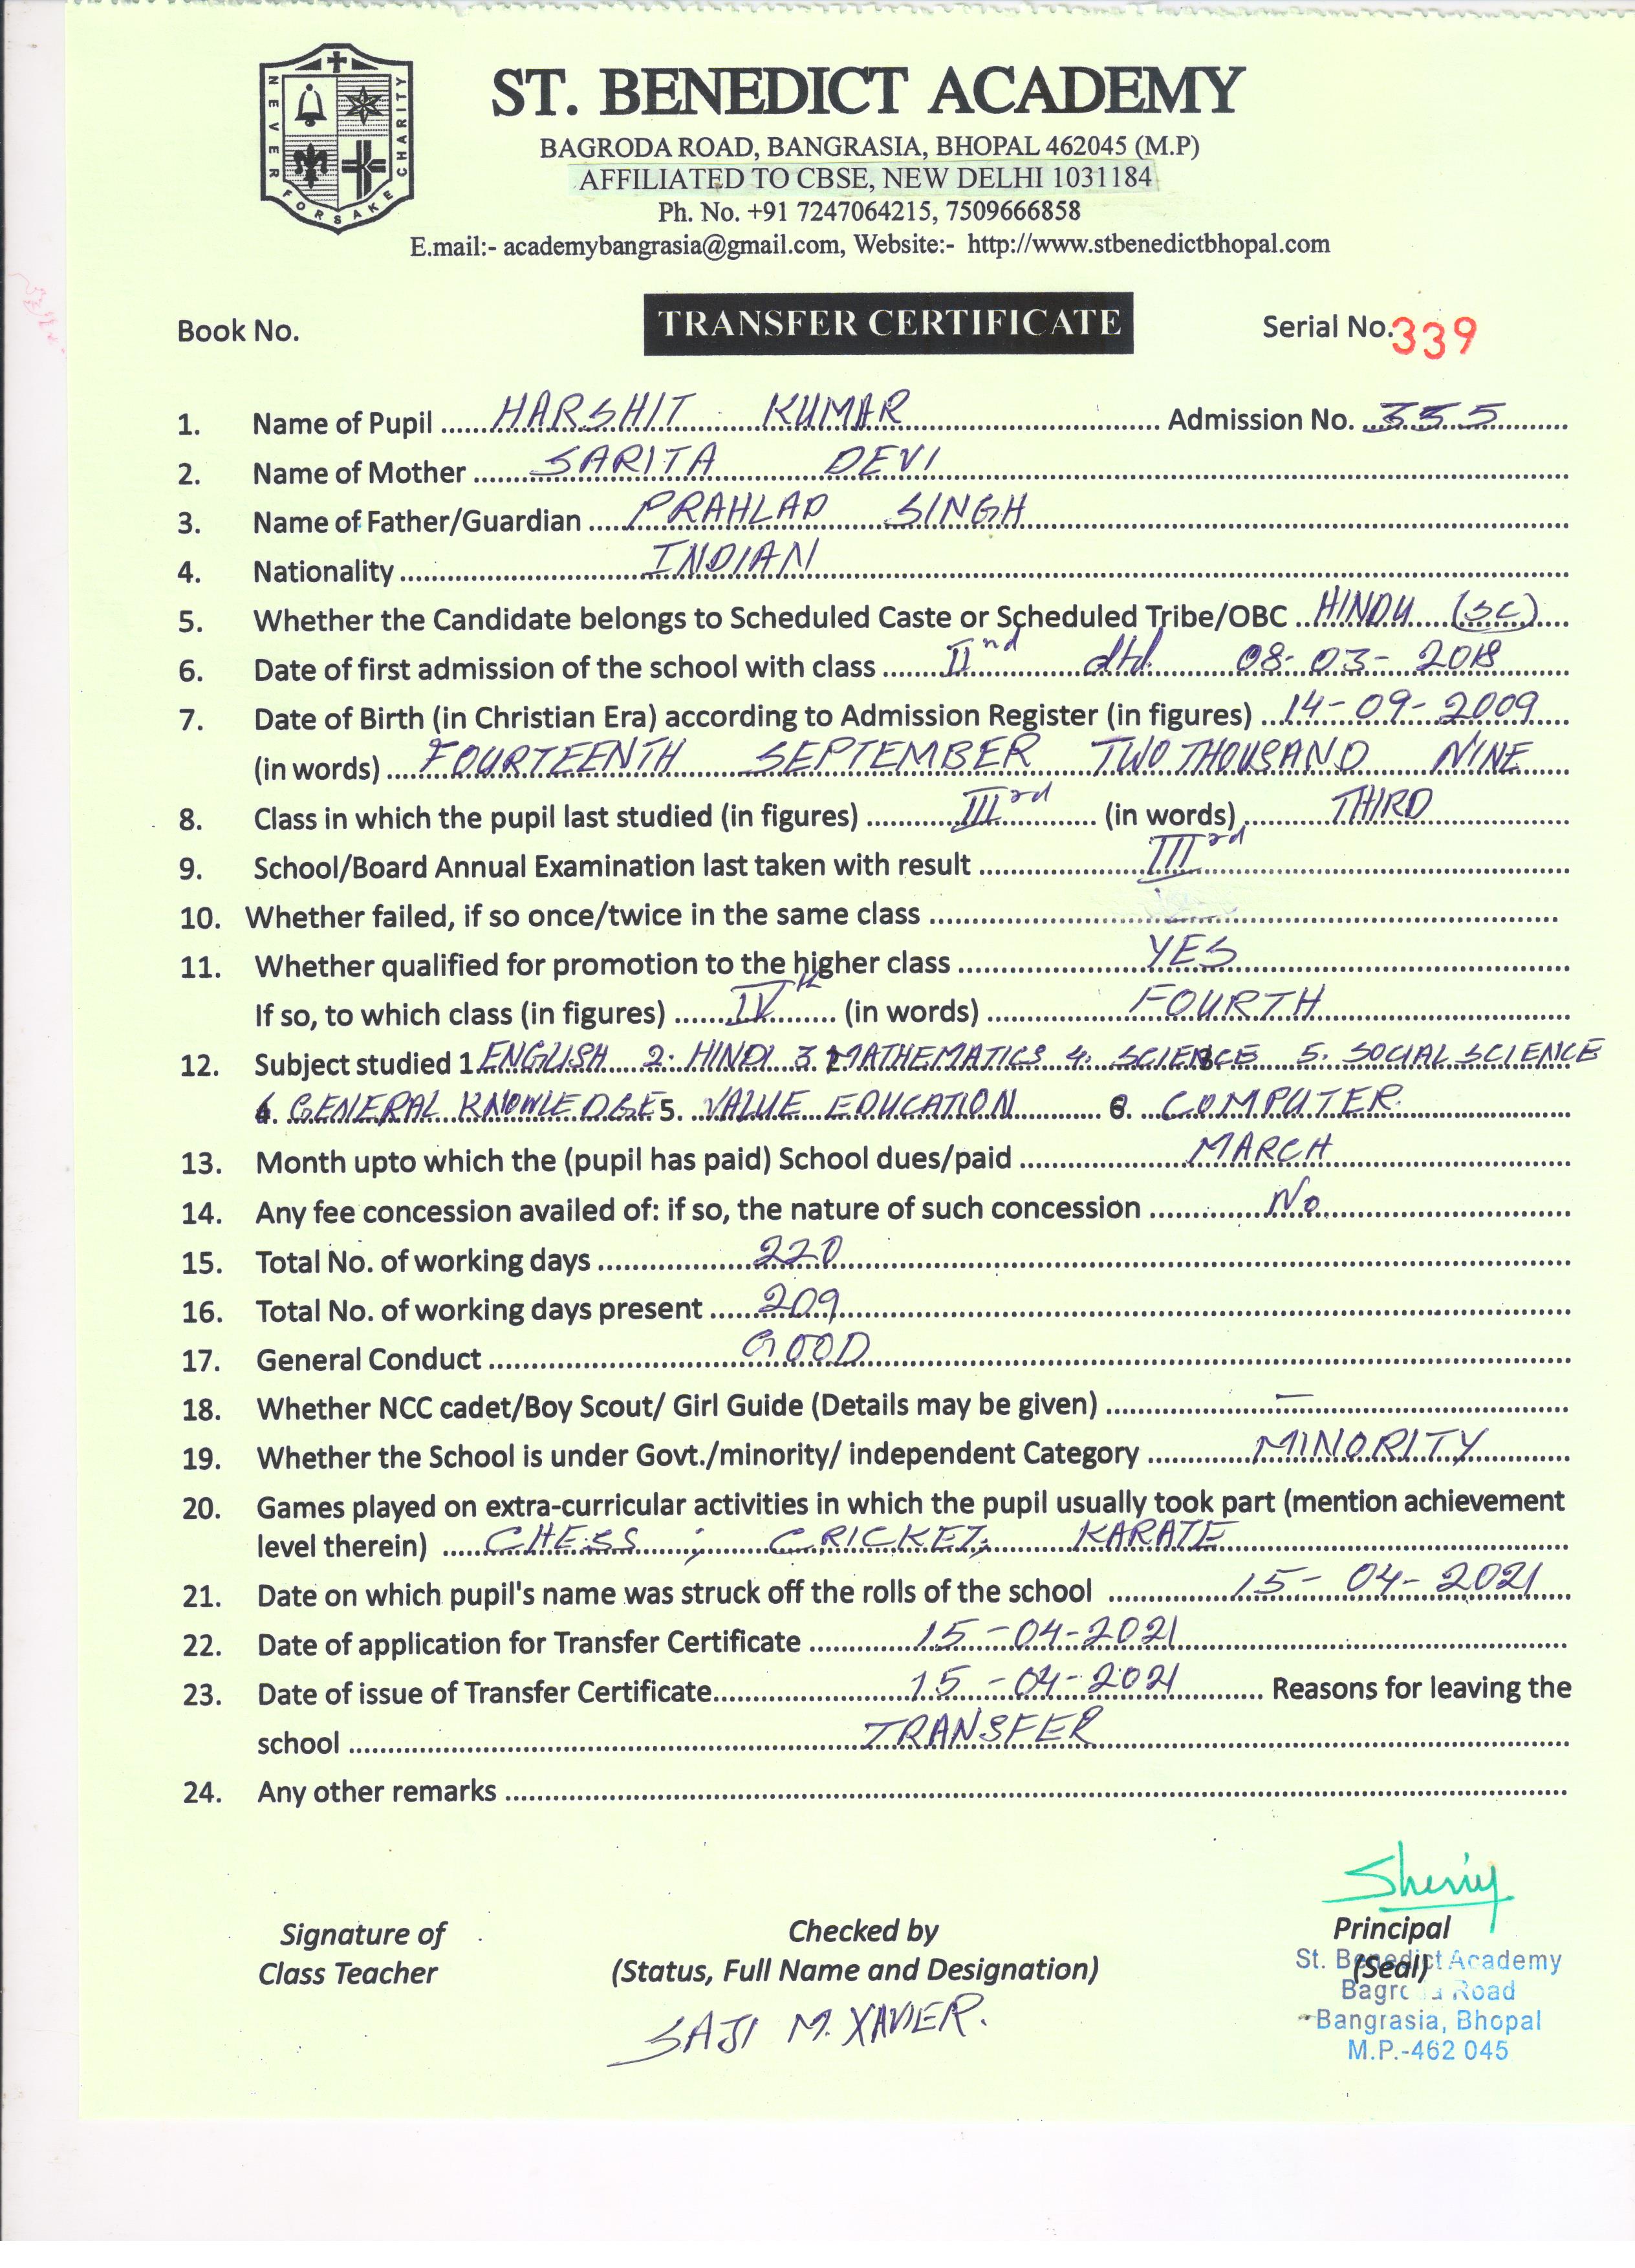 NEVER FORSAKE CHARITY
ST. BENEDICT ACADEMY
BAGRODA ROAD, BANGRASIA, BHOPAL 462045 (M.P)
AFFILIATED TO CBSE, NEW DELHI 1031184
Ph. No. +91 7247064215, 7509666858
E.mail:- academybangrasia@gmail.com, Website:- http://www.stbenedictbhopal.com
Book No. TRANSFER CERTIFICATE Serial No. 339
1. Name of Pupil HARSHIT KUMAR Admission No. 355
2. Name of Mother SARITA DEVI
3. Name of Father/Guardian PRAHLAD SINGH
4. Nationality INDIAN
5. Whether the Candidate belongs to Scheduled Caste or Scheduled Tribe/OBC HINDU (SC)
6. Date of first admission of the school with class IInd dtd. 08-03-2018
7. Date of Birth (in Christian Era) according to Admission Register (in figures) 14-09-2009
(in words) FOURTEENTH SEPTEMBER TWO THOUSAND NINE
8. Class in which the pupil last studied (in figures) IIIrd (in words) THIRD
9. School/Board Annual Examination last taken with result IIIrd
10. Whether failed, if so once/twice in the same class
11. Whether qualified for promotion to the higher class YES
If so, to which class (in figures) IVth (in words) FOURTH
12. Subject studied 1. ENGLISH 2. HINDI 3. MATHEMATICS 4. SCIENCE 5. SOCIAL SCIENCE
6. GENERAL KNOWLEDGE 5. VALUE EDUCATION 6. COMPUTER.
13. Month upto which the (pupil has paid) School dues/paid MARCH
14. Any fee concession availed of: if so, the nature of such concession No
15. Total No. of working days 220
16. Total No. of working days present 209
17. General Conduct GOOD
18. Whether NCC cadet/Boy Scout/ Girl Guide (Details may be given) —
19. Whether the School is under Govt./minority/ independent Category MINORITY
20. Games played on extra-curricular activities in which the pupil usually took part (mention achievement
level therein) CHESS ; CRICKET; KARATE
21. Date on which pupil's name was struck off the rolls of the school 15-04-2021
22. Date of application for Transfer Certificate 15-04-2021
23. Date of issue of Transfer Certificate 15-04-2021 Reasons for leaving the
school TRANSFER
24. Any other remarks
Sherry
Signature of Checked by Principal
Class Teacher (Status, Full Name and Designation) (Seal)
SAJI M. XAVIER.
St. Benedict Academy
Bagroda Road
Bangrasia, Bhopal
M.P.-462 045